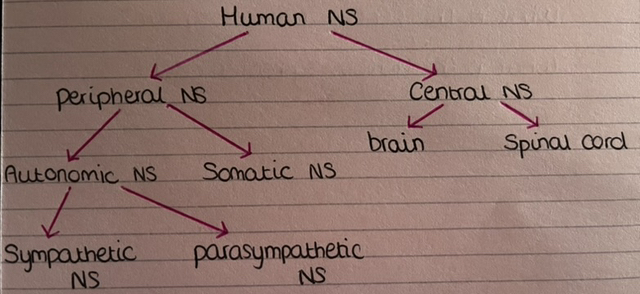 Human NS
Peripheral NS Central NS
brain Spinal cord
Autonomic NS Somatic NS
Sympathetic parasympathetic
NS NS